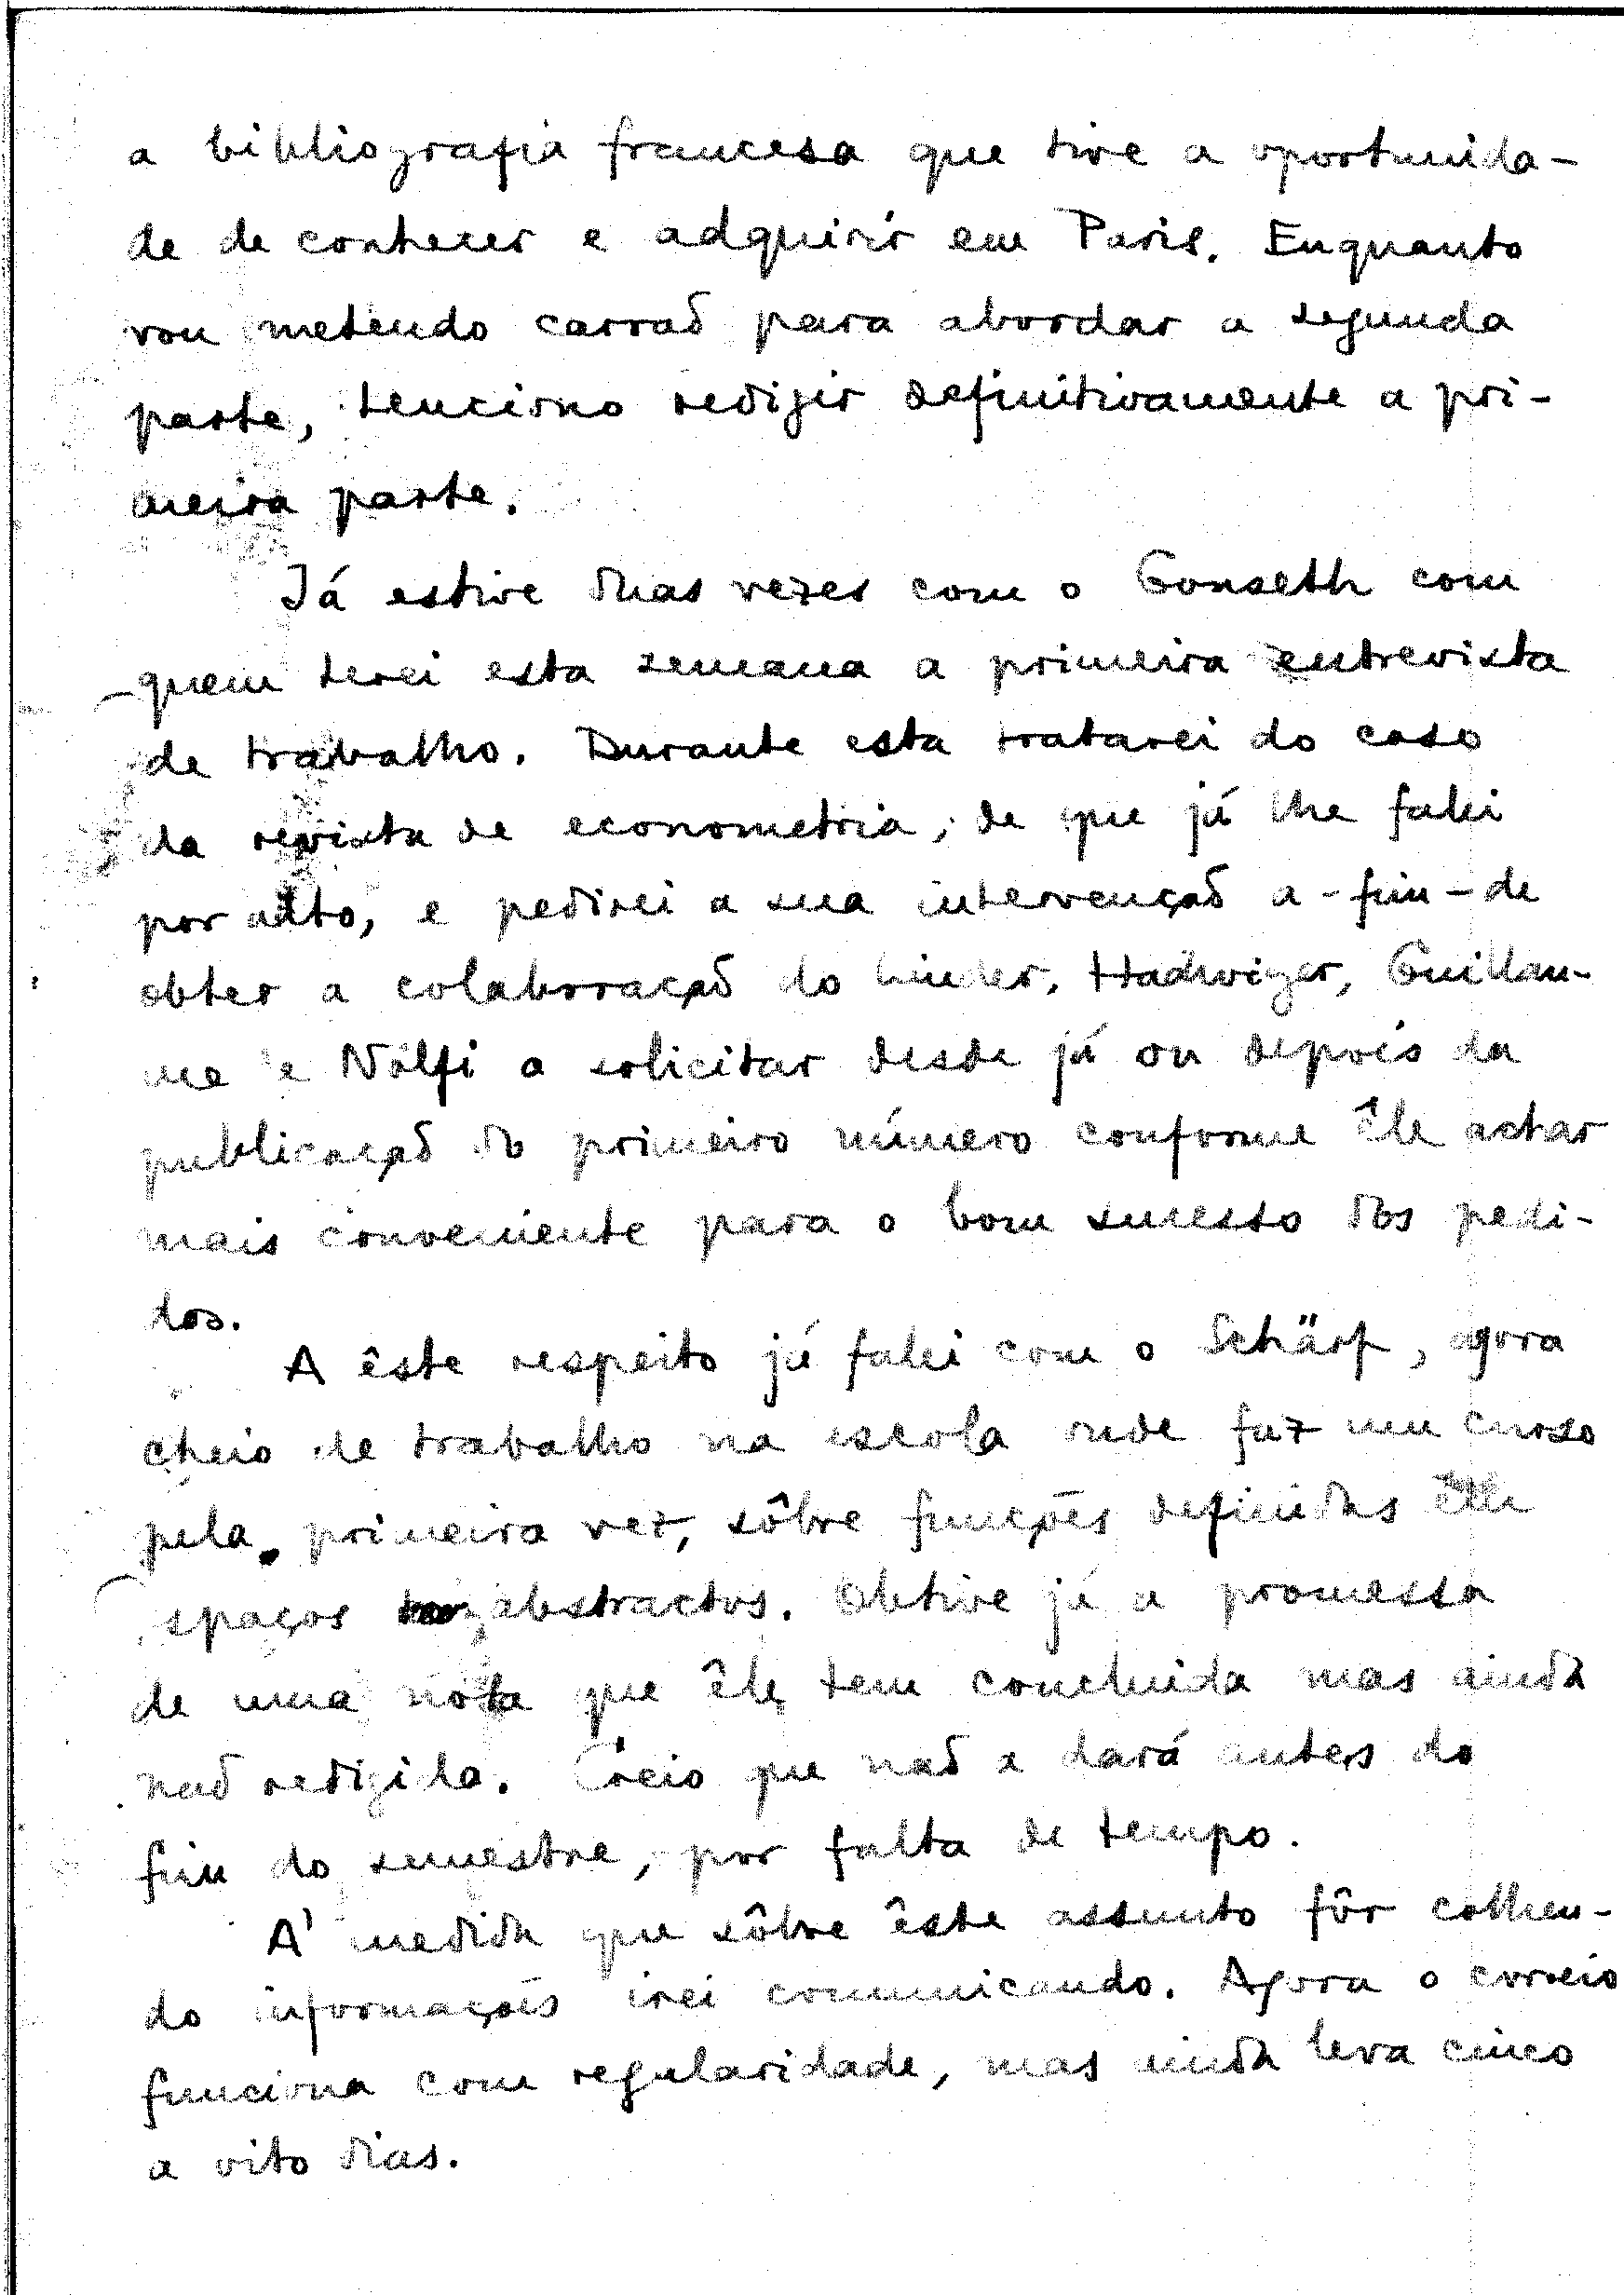 a bibliografia francesa que tive a oportunida-
de de conhecer e adquirir em Paris. Enquanto
vou metendo carvão para abordar a segunda
parte, tenciono redigir definitivamente a pri-
meira parte.
Já estive duas vezes com o Gonseth com
quem terei esta semana a primeira entrevista
de trabalho. Durante esta tratarei do caso
da revista de econometria, de que já lhe falei
por alto, e pedirei a sua intervenção a-fim-de
obter a colaboração do Linder, Hadwiger, Guillau-
me e Nolfi a solicitar desde já ou depois da
publicação do primeiro número conforme êle achar
mais conveniente para o bom sucesso dos pedi-
dos.
A êste respeito já falei com o Schärf, agora
cheio de trabalho na escola onde faz um curso
pela primeira vez, sôbre funções definidas em
espaços abstractos. Obtive já a promessa
de uma nota que êle tem concluida mas ainda
não redigida. Creio que não a dará antes do
fim do semestre, por falta de tempo.
A' medida que sôbre êste assunto fôr colhen-
do informações irei comunicando. Agora o correio
funciona com regularidade, mas ainda leva cinco
a oito dias.